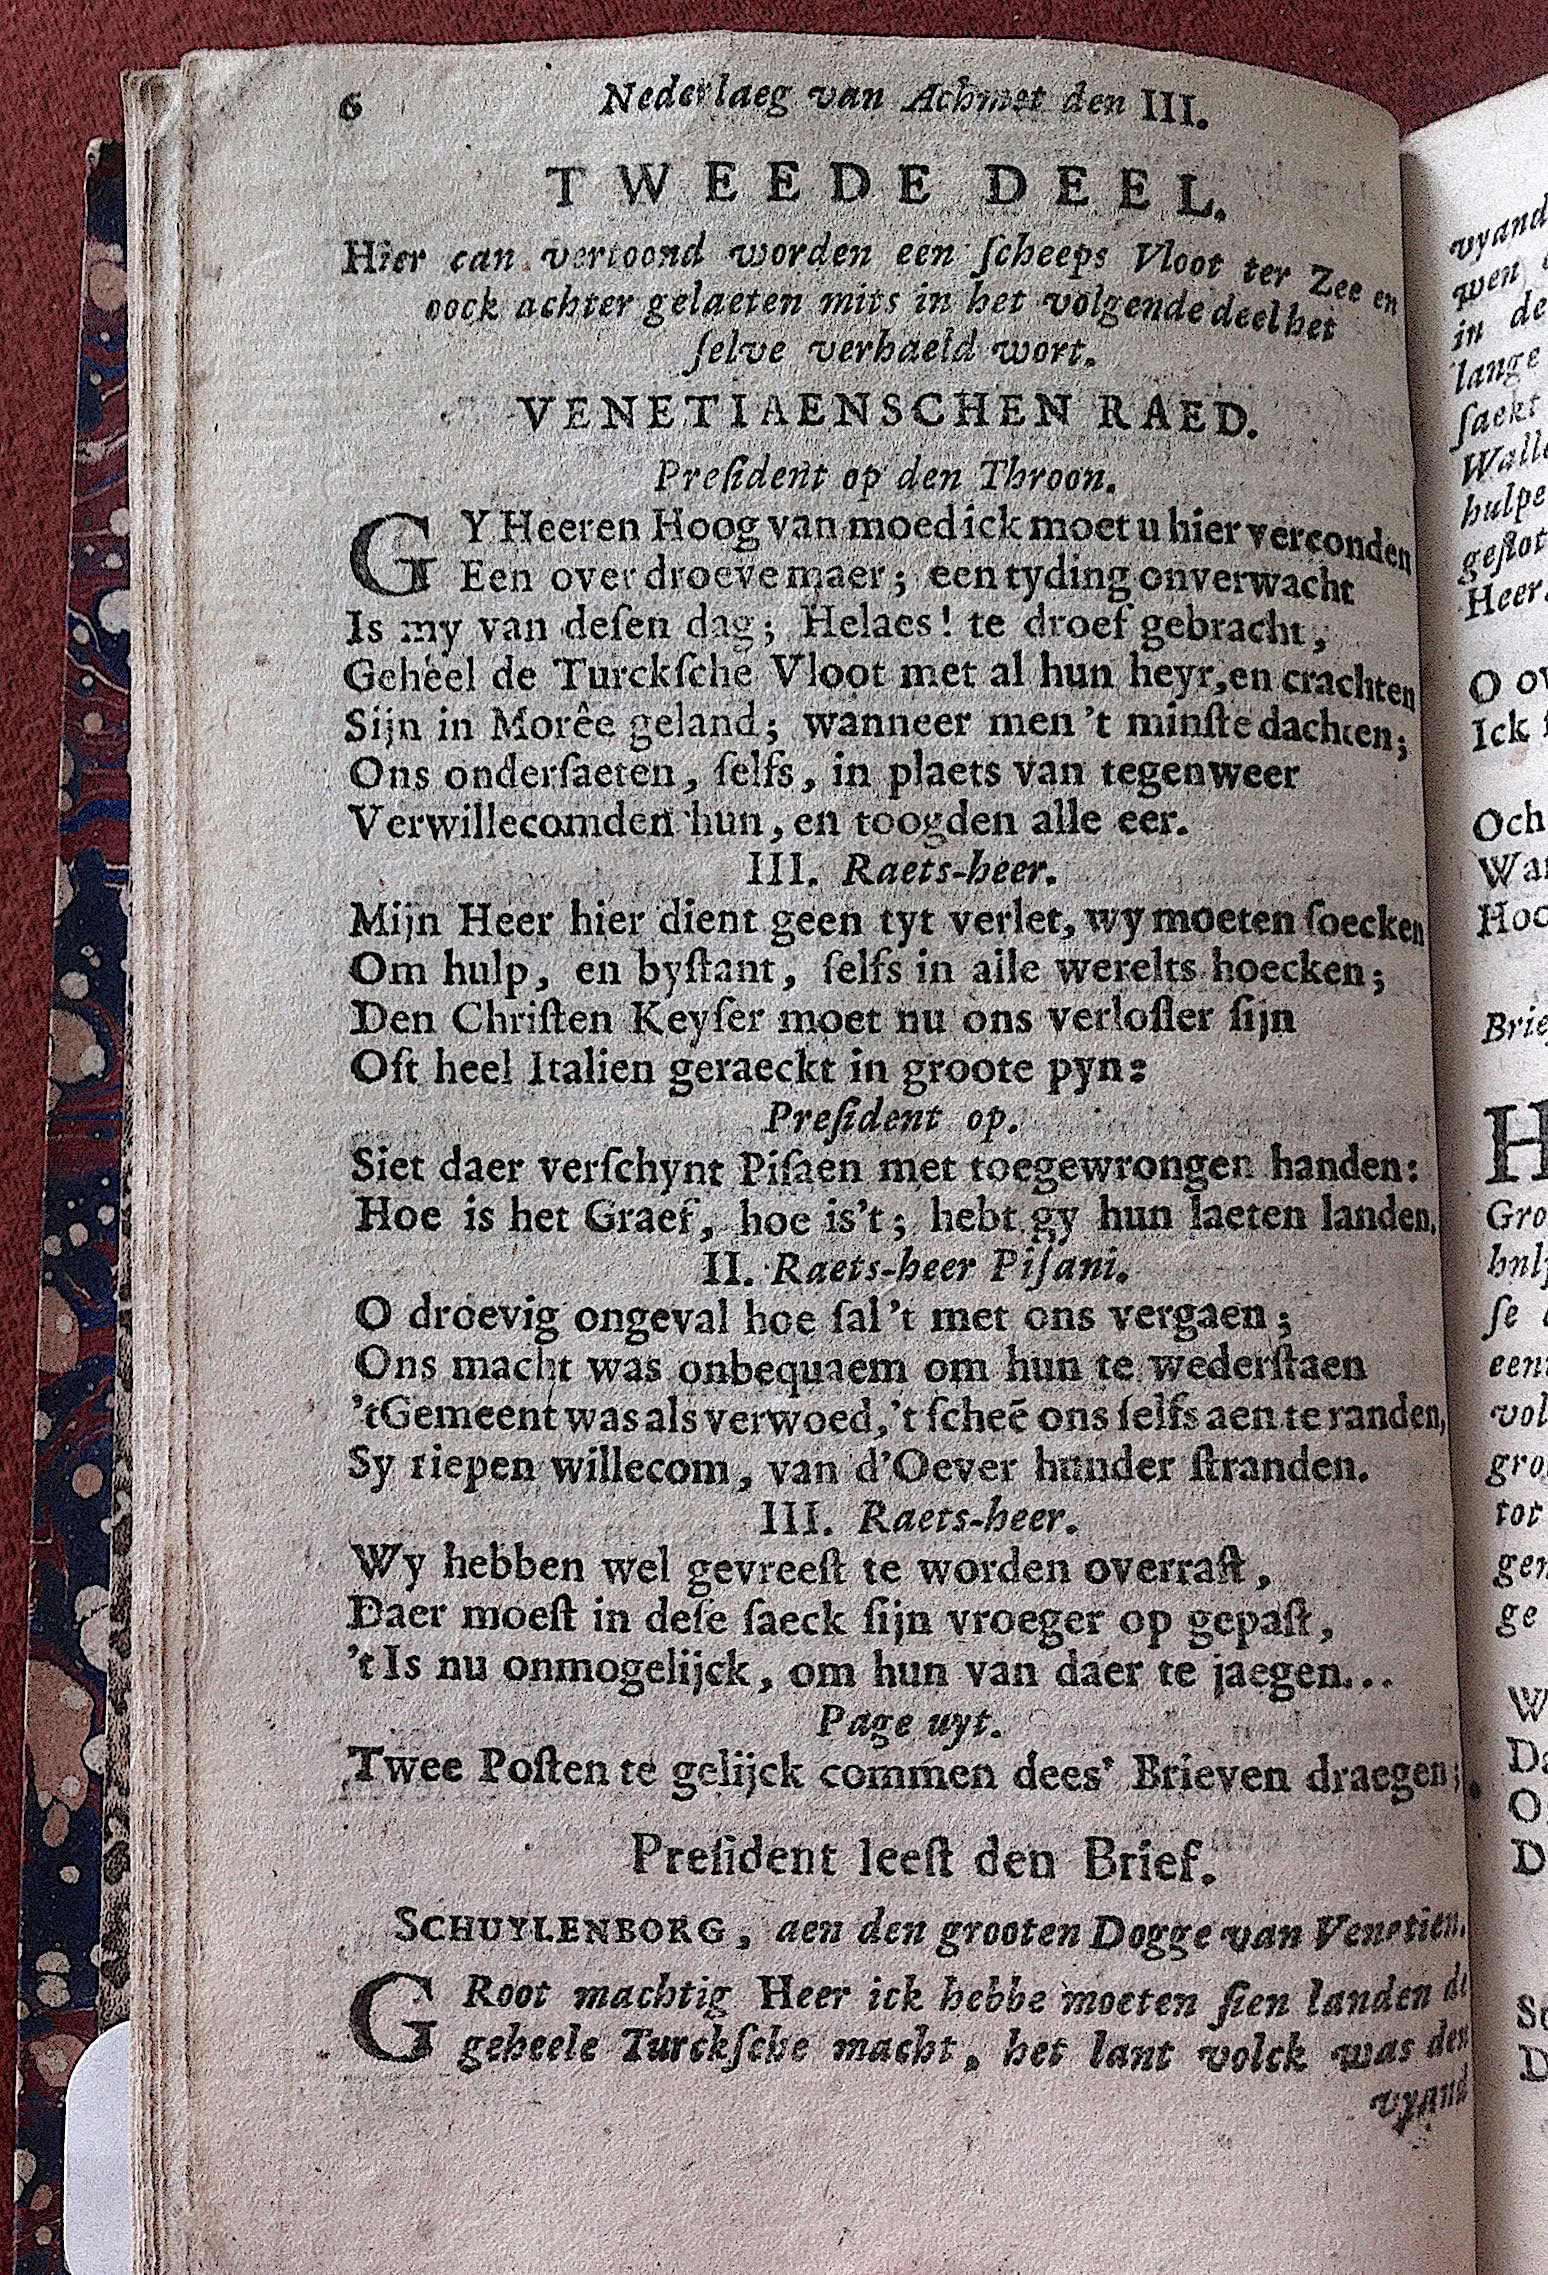 6 Nederlaeg van Achmet den III.
TWEEDE DEEL.
Hier can vertoond worden een ſcheeps Vloot ter Zee en
oock achter gelaeten mits in het volgende deel het
ſelve verhaeld wort.
VENETIAENSCHEN RAED.
Preſident op den Throon.
GY Heeren Hoog van moed ick moet u hier verconden
Een over droeve maer; een tyding onverwacht
Is my van deſen dag; Helaes! te droef gebracht,
Geheel de Turckſche Vloot met al hun heyr, en crachten
Sijn in Morêe geland; wanneer men 't minſte dachten;
Ons onderſaeten, ſelfs, in plaets van tegenweer
Verwillecomden hun, en toogden alle eer.
III. Raets-heer.
Mijn Heer hier dient geen tyt verlet, wy moeten ſoecken
Om hulp, en byſtant, ſelfs in alle werelts hoecken;
Den Chriſten Keyſer moet nu ons verloſſer ſijn
Oft heel Italien geraeckt in groote pyn:
Preſident op.
Siet daer verſchynt Piſaen met toegewrongen handen:
Hoe is het Graef, hoe is't; hebt gy hun laeten landen.
II. Raets-heer Piſani.
O droevig ongeval hoe ſal 't met ons vergaen;
Ons macht was onbequaem om hun te wederſtaen
'tGemeent was als verwoed, 't ſcheē ons ſelfs aen te randen,
Sy riepen willecom, van d'Oever hunder ſtranden.
III. Raets-heer.
Wy hebben wel gevreeſt te worden overraſt,
Daer moeſt in deſe ſaeck ſijn vroeger op gepaſt,
't Is nu onmogelijck, om hun van daer te jaegen...
Page uyt.
Twee Poſten te gelijck commen dees' Brieven draegen;
Preſident leeſt den Brief.
SCHUYLENBORG, aen den grooten Dogge van Venetien.
GRoot machtig Heer ick hebbe moeten ſien landen de
geheele Turckſche macht, het lant volck was den
vyand
vyand
wen
in de
lange
ſaekt
hulpe
geſlot
Heer.
O
Ick
Och
Hoo
H
Gro
ſe
vol
gro
tot
ge
W
D
O
D